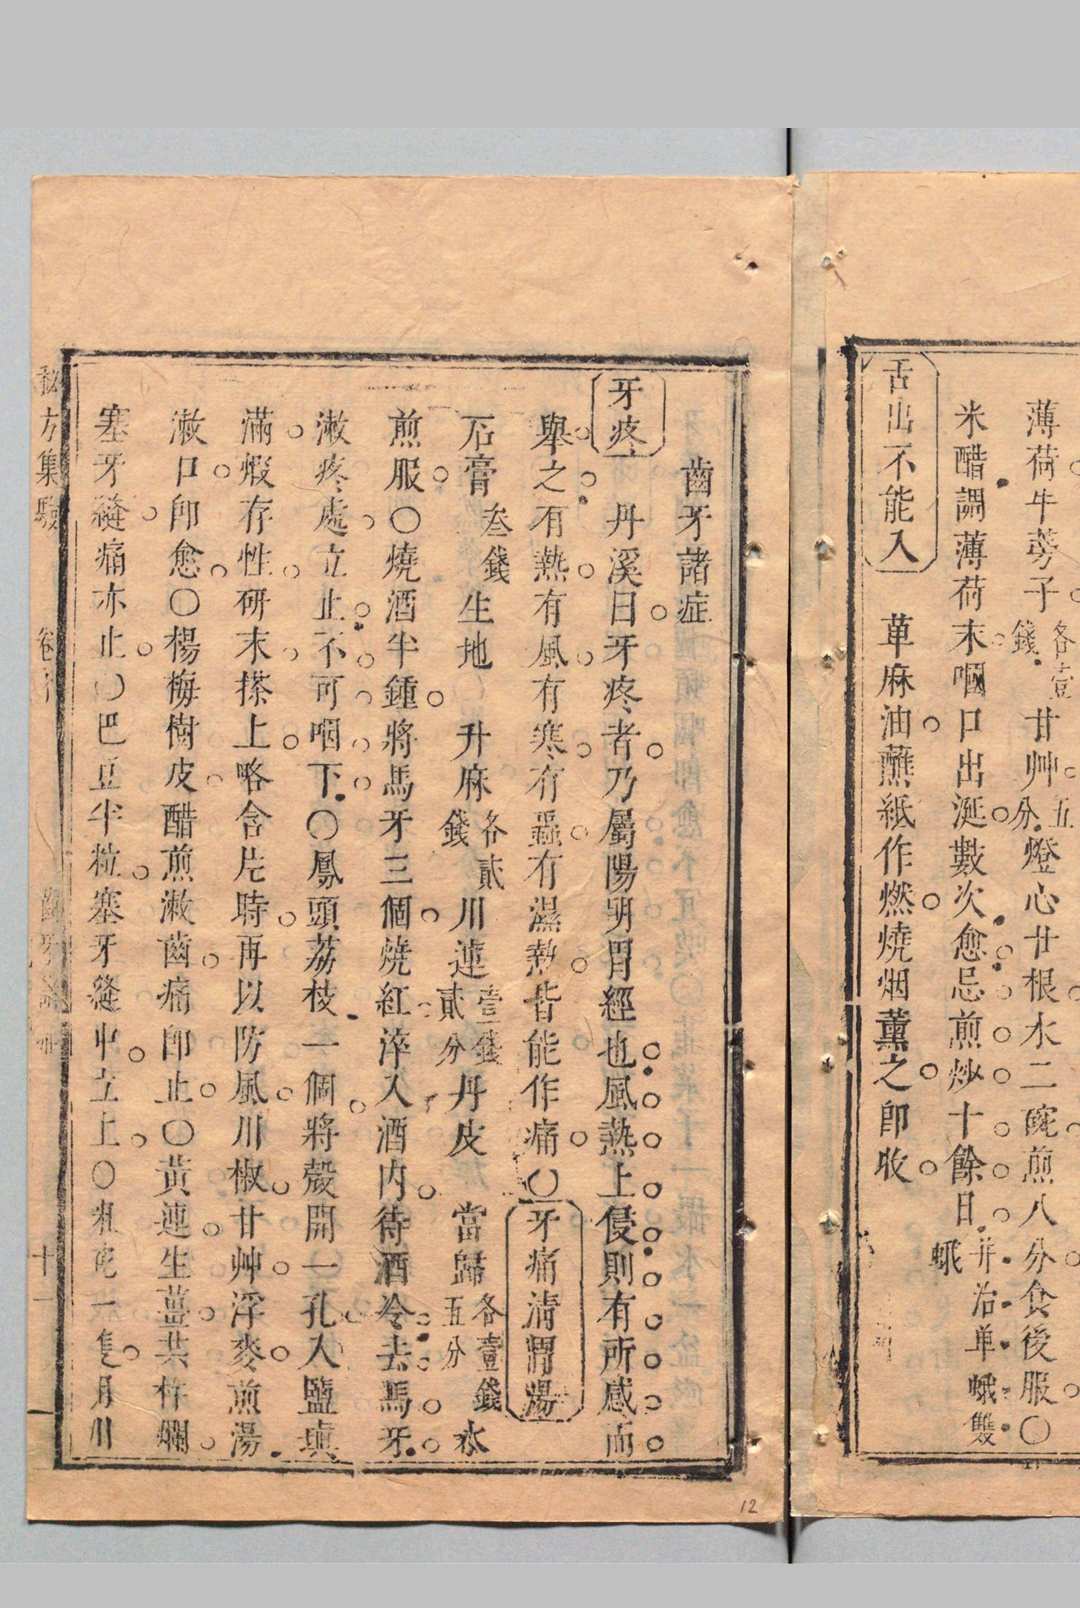 薄荷牛蒡子各壹錢甘艸五分燈心廿根水二碗煎八分食後服〇
米醋調薄荷末嚥口出涎數次愈忌煎炒十餘日并治单蛾雙蛾
舌出不能入 萆麻油蘸紙作燃燒烟薰之即收
齒牙諸症
牙疼 丹溪曰牙疼者乃屬陽明胃經也風熱上侵則有所感而
舉之有熱有風有寒有蟲有濕熱皆能作痛〇牙痛清胃湯
石膏叁錢生地 升麻各貳錢川連壹錢貳分丹皮 當歸各壹錢五分水
煎服〇燒酒半鍾將馬牙三個燒紅淬入酒内待酒冷去馬牙
漱疼處立止不可嚥下〇鳳頭荔枝一個將殼開一孔入鹽填
滿煅存性研末搽上略含片時再以防風川椒甘艸浮麥煎湯
漱口即愈〇楊梅樹皮醋煎漱齒痛即止〇黃連生薑共杵爛
塞牙縫痛亦止〇巴豆半粒塞牙縫中立止〇一隻用川
秘方集驗 卷 齒牙諸症 十一
12